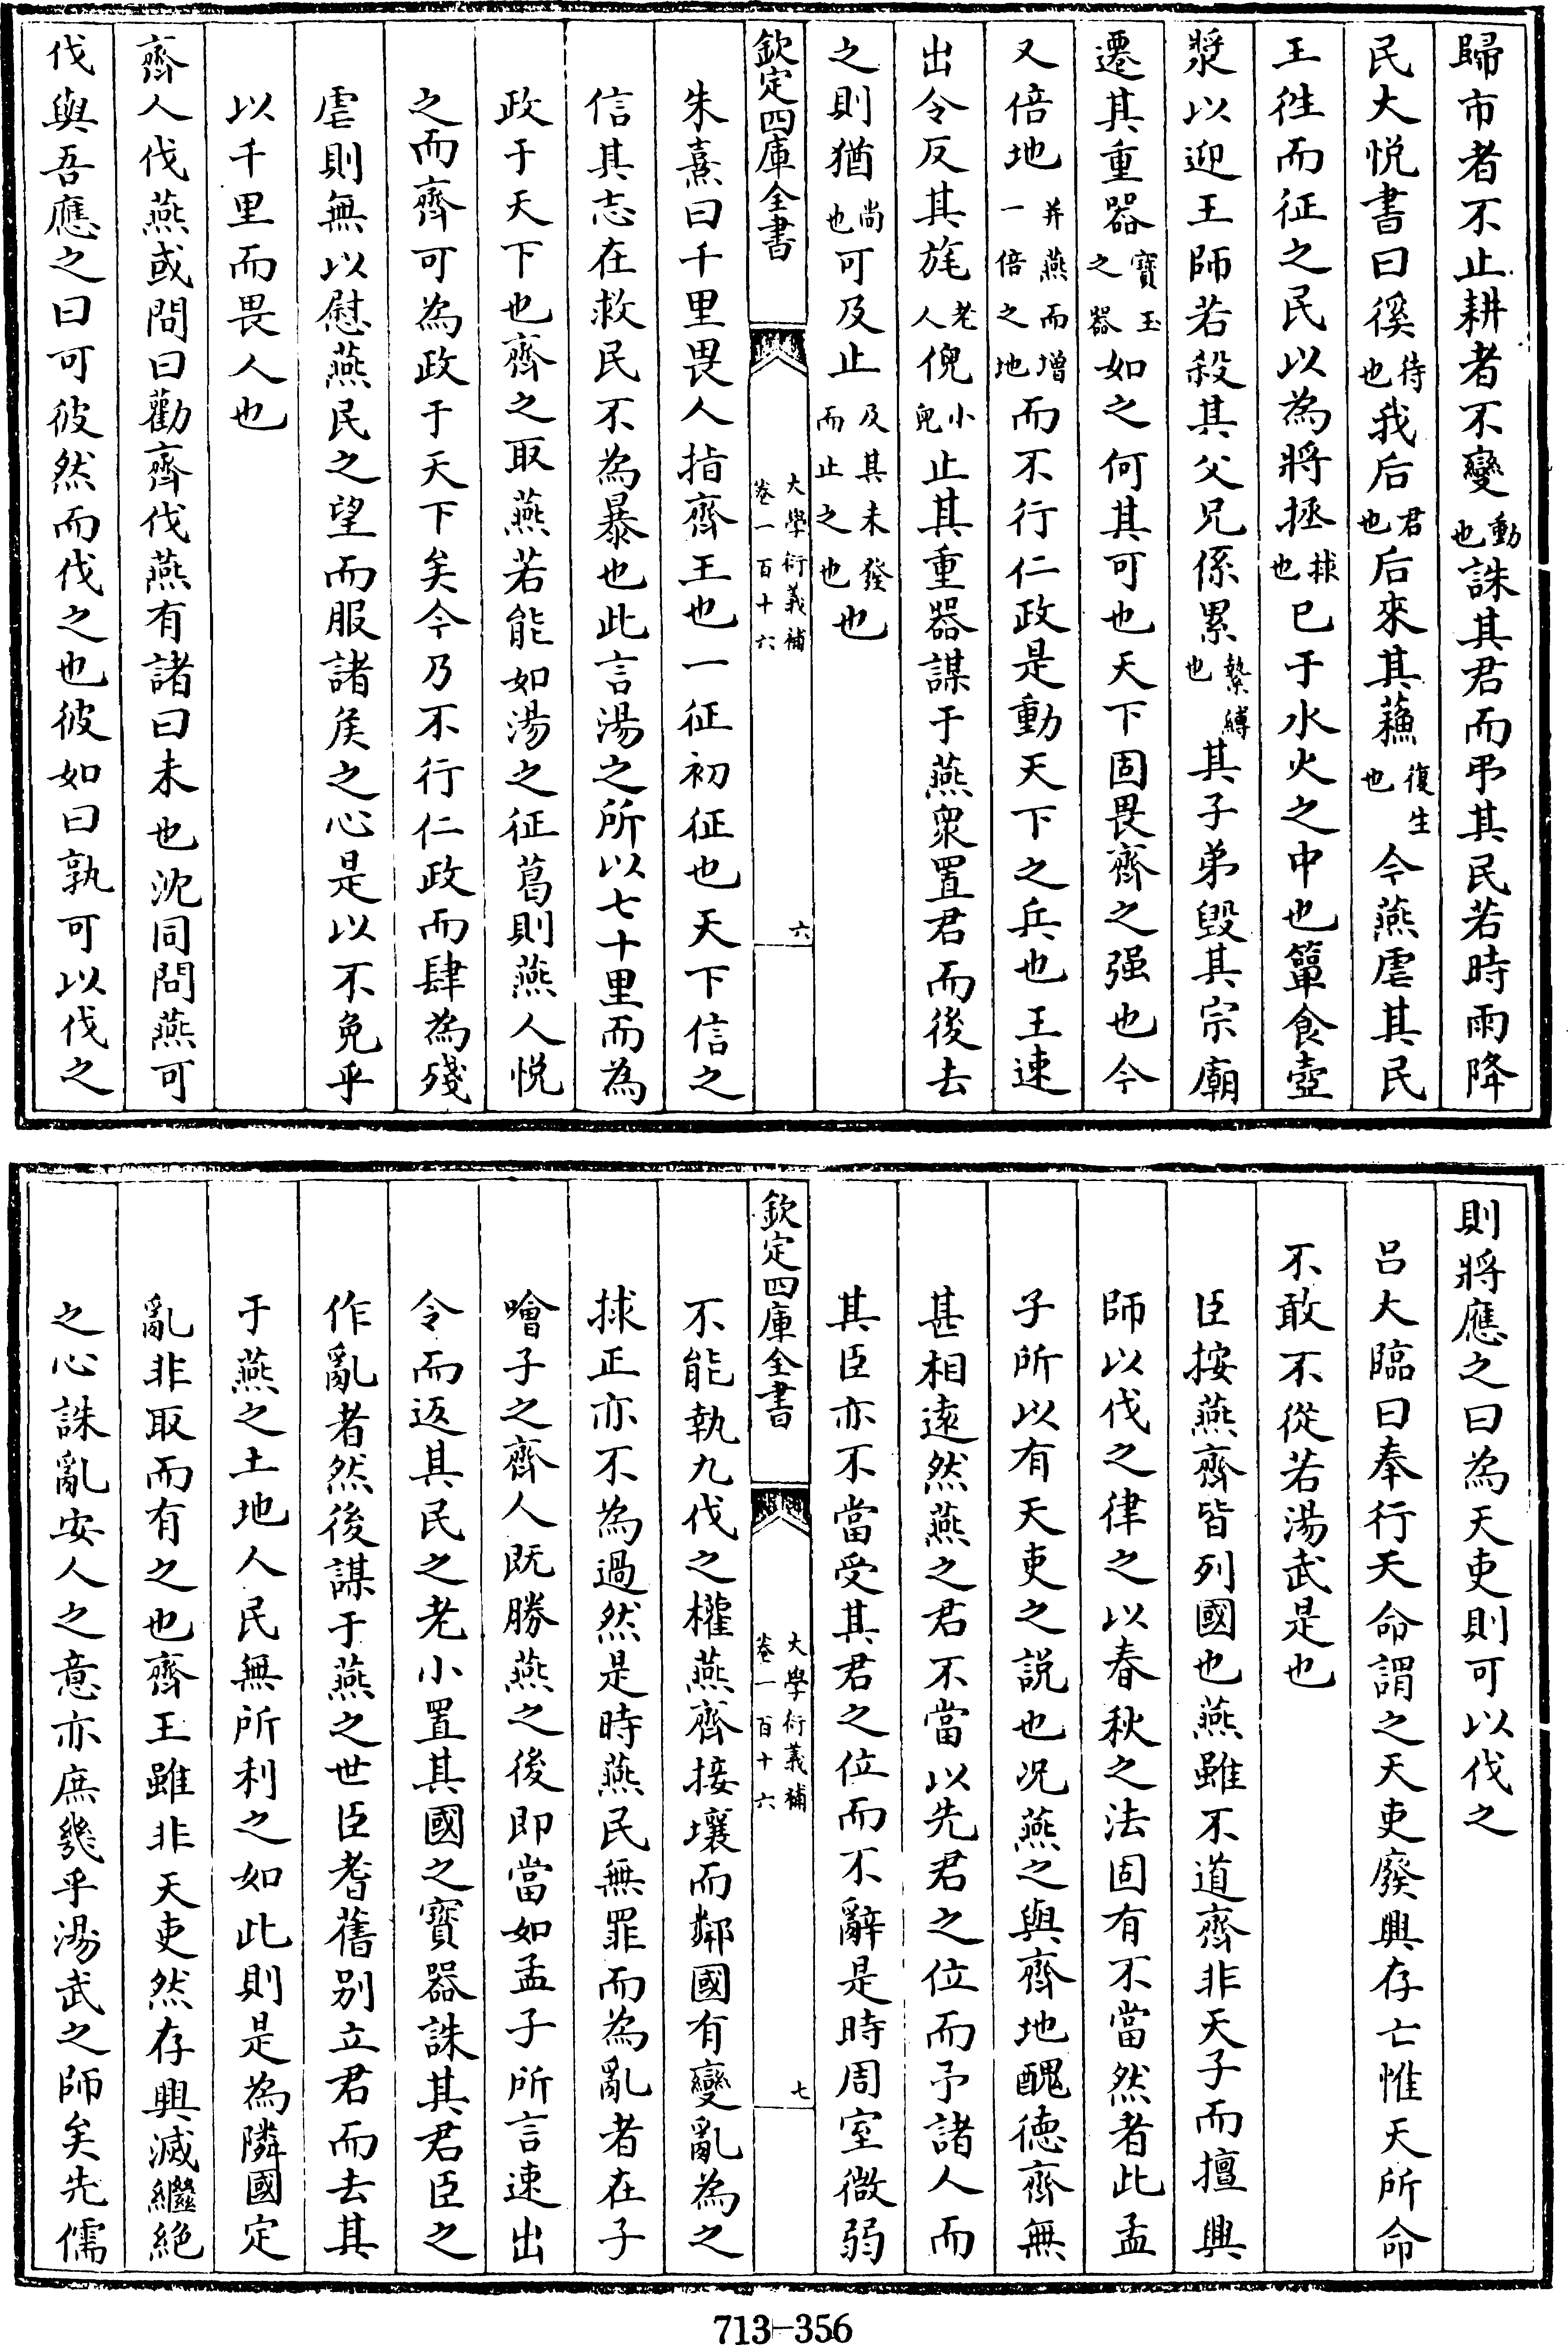 歸市者不止耕者不變動也誅其君而弔其民若時雨降
民大悦書曰徯待也我后君也后來其蘓復生也今燕虐其民
王徃而征之民以為將拯捄也已于水火之中也簞食壺
漿以迎王師若殺其父兄係累縶縛也其子弟毁其宗廟
遷其重器寶玉之器如之何其可也天下固畏齊之强也今
又倍地并燕而增一倍之地而不行仁政是動天下之兵也王速
出令反其旄老人倪小兒止其重器謀于燕衆置君而後去
之則猶尚也可及止及其未發而止之也也
欽定四庫全書
大學衍義補
卷一百十六
六
朱熹曰千里畏人指齊王也一征初征也天下信之
信其志在救民不為暴也此言湯之所以七十里而為
政于天下也齊之取燕若能如湯之征葛則燕人悦
之而齊可為政于天下矣今乃不行仁政而肆為殘
虐則無以慰燕民之望而服諸侯之心是以不免乎
以千里而畏人也
齊人伐燕或問曰勸齊伐燕有諸曰未也沈同問燕可
伐與吾應之曰可彼然而伐之也彼如曰孰可以伐之
則將應之曰為天吏則可以伐之
吕大臨曰奉行天命謂之天吏廢興存亡惟天所命
不敢不從若湯武是也
臣按燕齊皆列國也燕雖不道齊非天子而擅興
師以伐之律之以春秋之法固有不當然者此孟
子所以有天吏之説也况燕之與齊地醜德齊無
甚相逺然燕之君不當以先君之位而予諸人而
其臣亦不當受其君之位而不辭是時周室微弱
欽定四庫全書
大學衍義補
卷一百十六
七
不能執九伐之權燕齊接壤而鄰國有變亂為之
捄正亦不為過然是時燕民無罪而為亂者在子
噲子之齊人既勝燕之後即當如孟子所言速出
令而返其民之老小置其國之寶器誅其君臣之
作亂者然後謀于燕之世臣耆舊别立君而去其
于燕之土地人民無所利之如此則是為隣國定
亂非取而有之也齊王雖非天吏然存興滅繼絶
之心誅亂安人之意亦庶幾乎湯武之師矣先儒
713-356